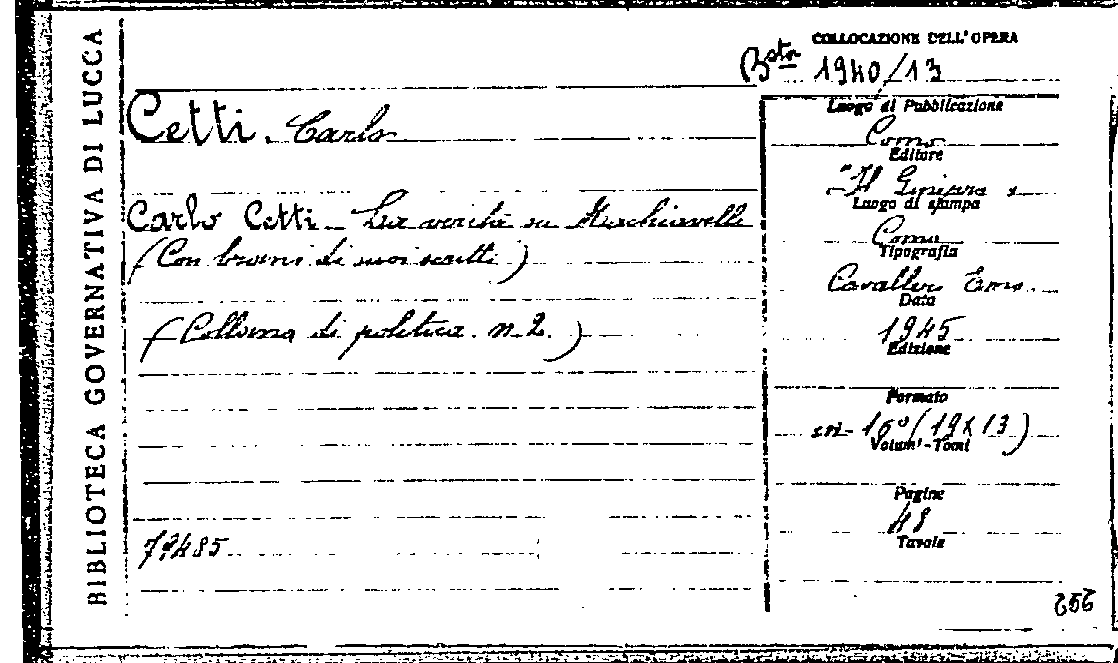 BIBLIOTECA GOVERNATIVA DI LUCCA
COLLOCAZIONE DELL'OPERA
Bsta 1940/13
Cetti Carlo
Carlo Cetti - La verità su Machiavelli
(Con brani di suoi scritti)
(Collana di politica. n. 2.)
79485
Luogo di Pubblicazione
Como
Editore
"Il
Luogo di stampa
Como
Tipografia
Cavalleri
Data
1945
Edizione
Formato
in-16° (19x13)
Volumi-Tomi
Pagine
48
Tavole